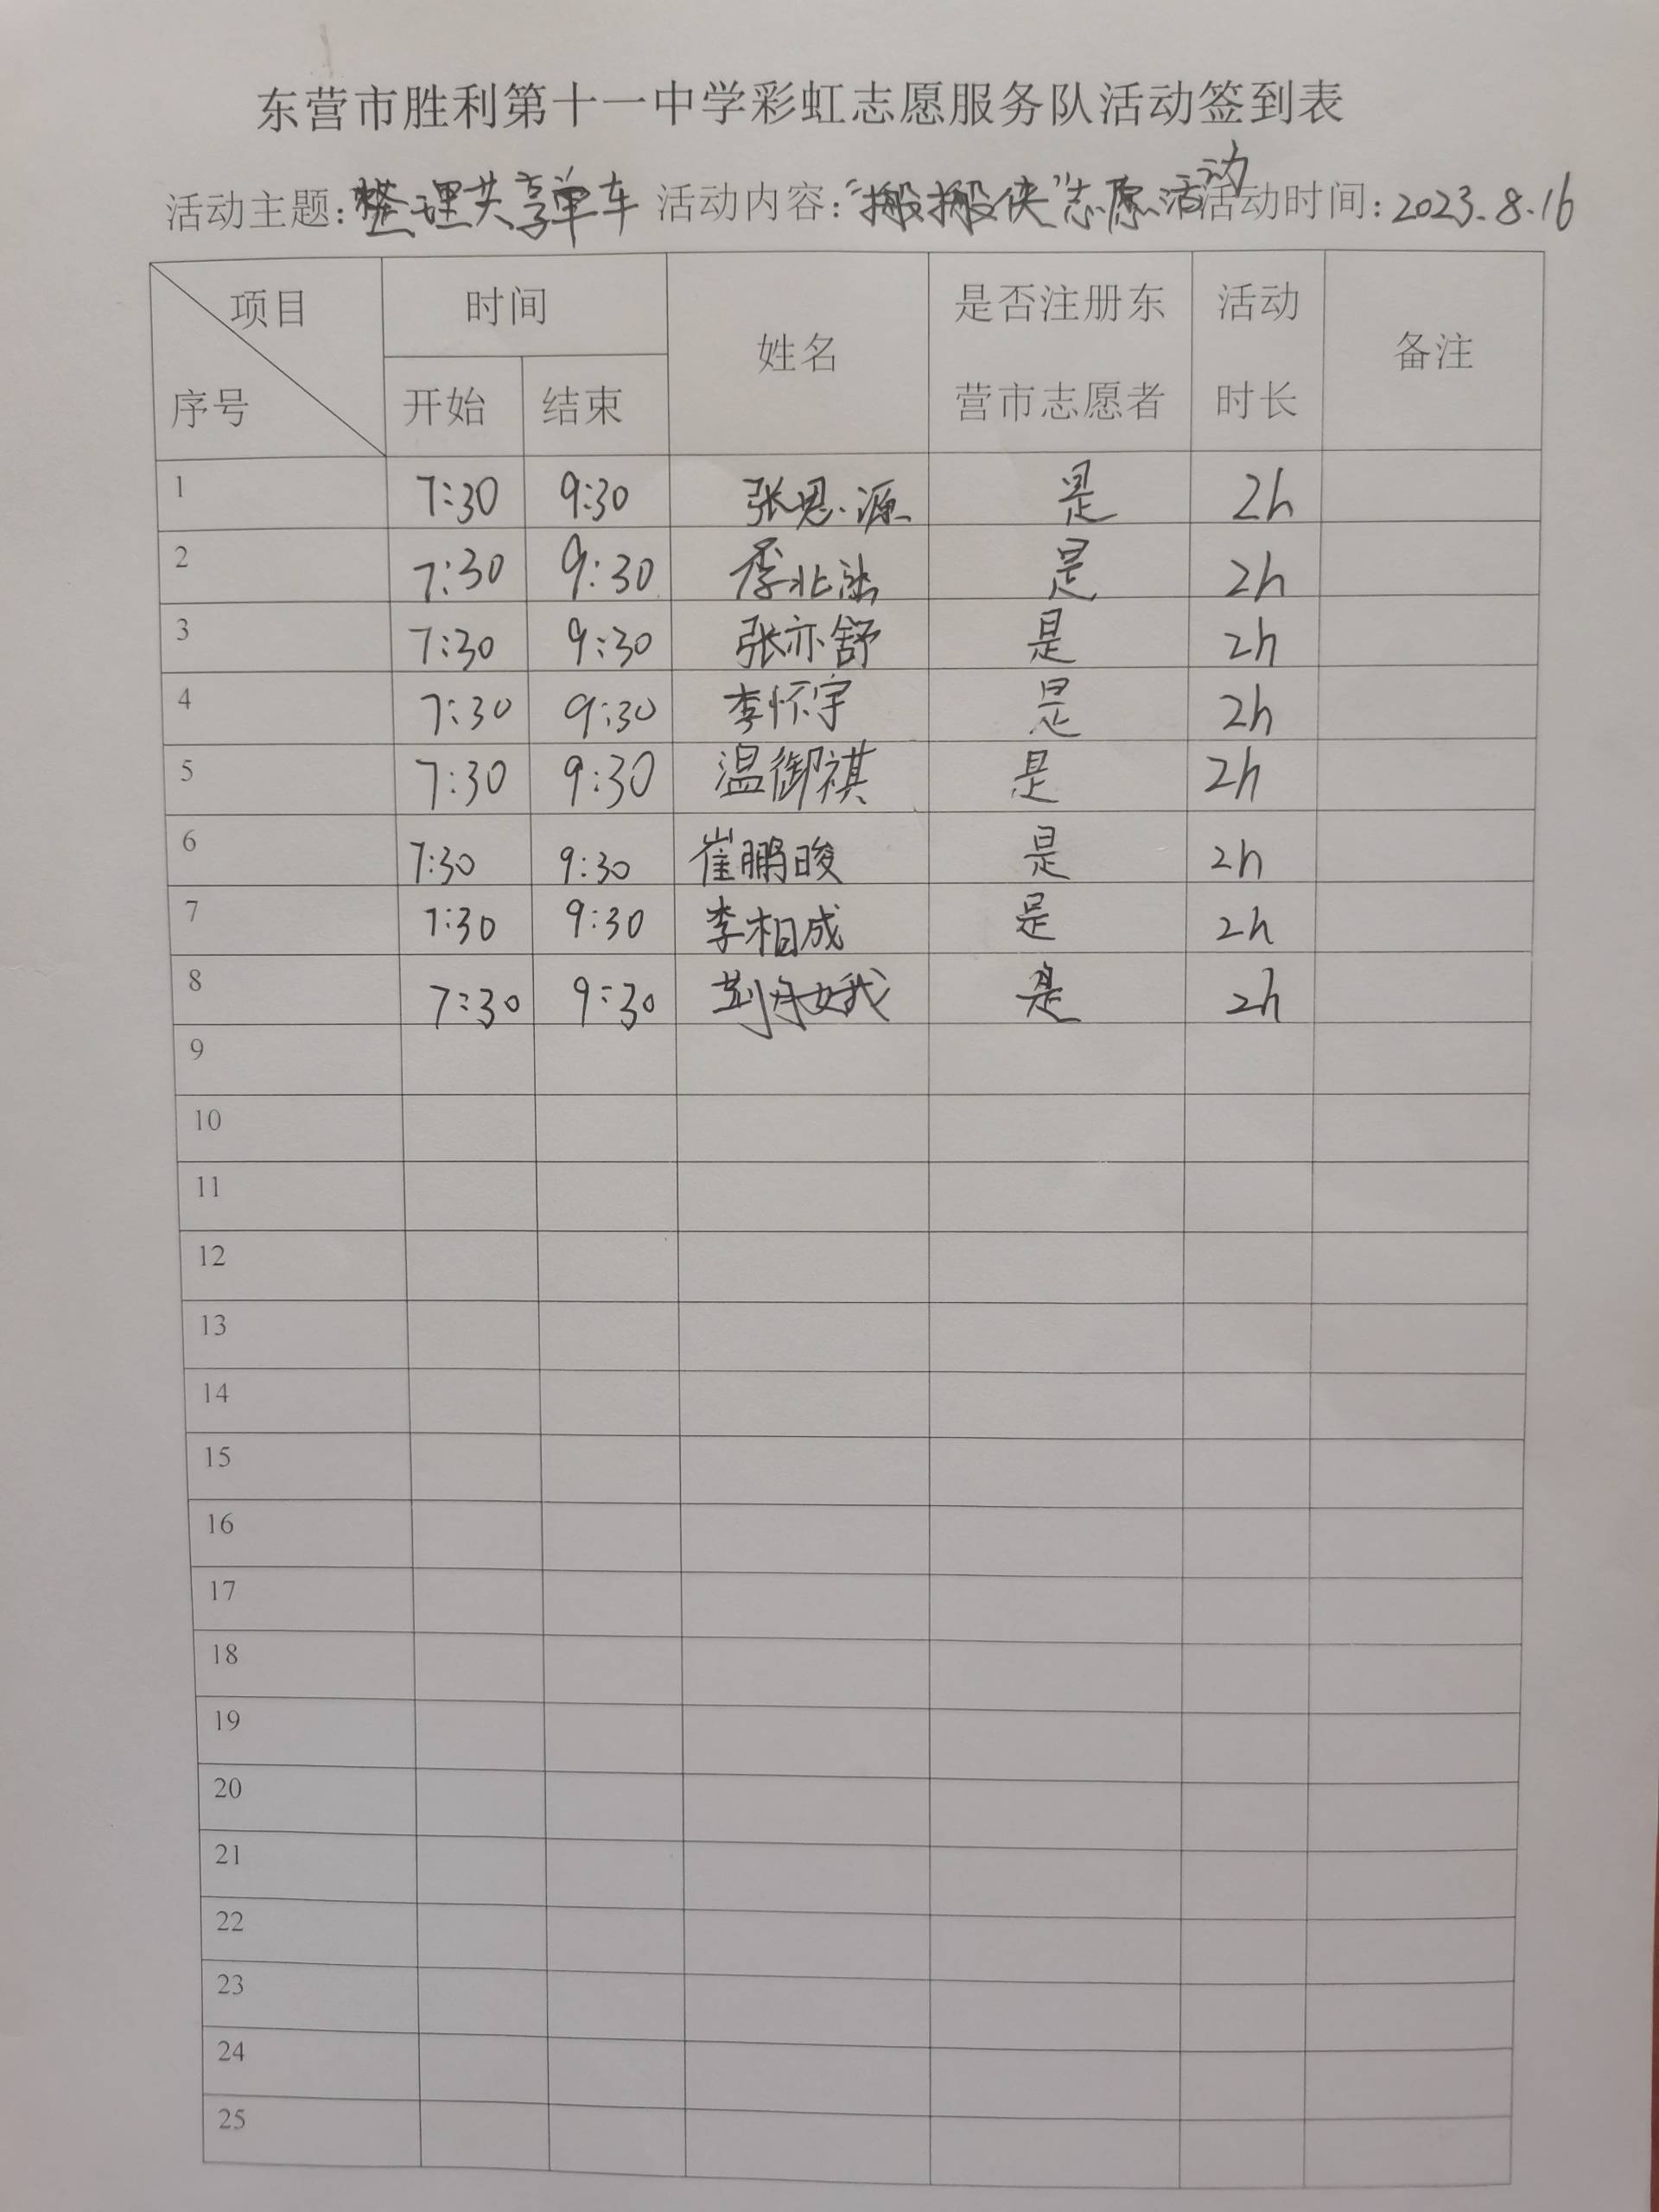 东营市胜利第十一中学彩虹志愿服务队活动签到表
活动主题:整理共享单车 活动内容:"搬搬侠"志愿活动 活动时间:2023.8.16
项目 时间 姓名 是否注册东营市志愿者 活动时长 备注
序号 开始 结束
1 7:30 9:30 张思源 是 2h
2 7:30 9:30 是 2h
3 7:30 9:30 张亦舒 是 2h
4 7:30 9:30 李怀宇 是 2h
5 7:30 9:30 温御祺 是 2h
6 7:30 9:30 崔鹏晙 是 2h
7 7:30 9:30 李相成 是 2h
8 7:30 9:30 是 2h
9
10
11
12
13
14
15
16
17
18
19
20
21
22
23
24
25